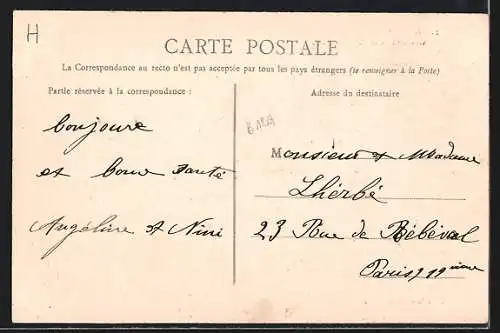 H
CARTE POSTALE
La Correspondance au recto n'est pas acceptée par tous les pays étrangers (se renseigner à la Poste)
Partie réservée à la correspondance :
Adresse du destinataire
bonjoure
et bonne santé
Angéline et Nini
Monsieur et Madame
Lhérbé
23 Rue de
Paris, 19ième